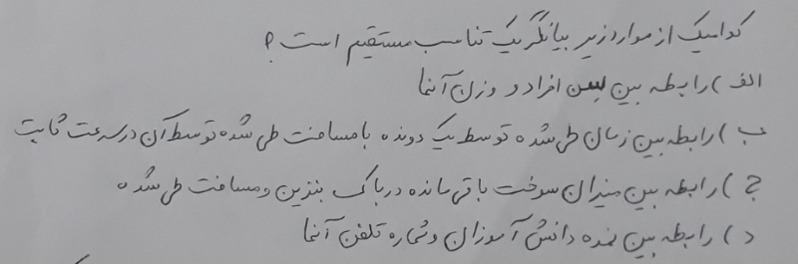 کدامیک از موارد زیر بیانگر یک تناسب مستقیم است؟
الف) رابطه بین سن افراد و وزن آنها
ب) رابطه بین زمان طی شده توسط یک دونده با مسافت طی شده توسط آن در سرعت ثابت
ج) رابطه بین میزان سوخت باقی مانده در باک بنزین و مسافت طی شده
د) رابطه بین نمره دانش آموزان و شماره تلفن آنها